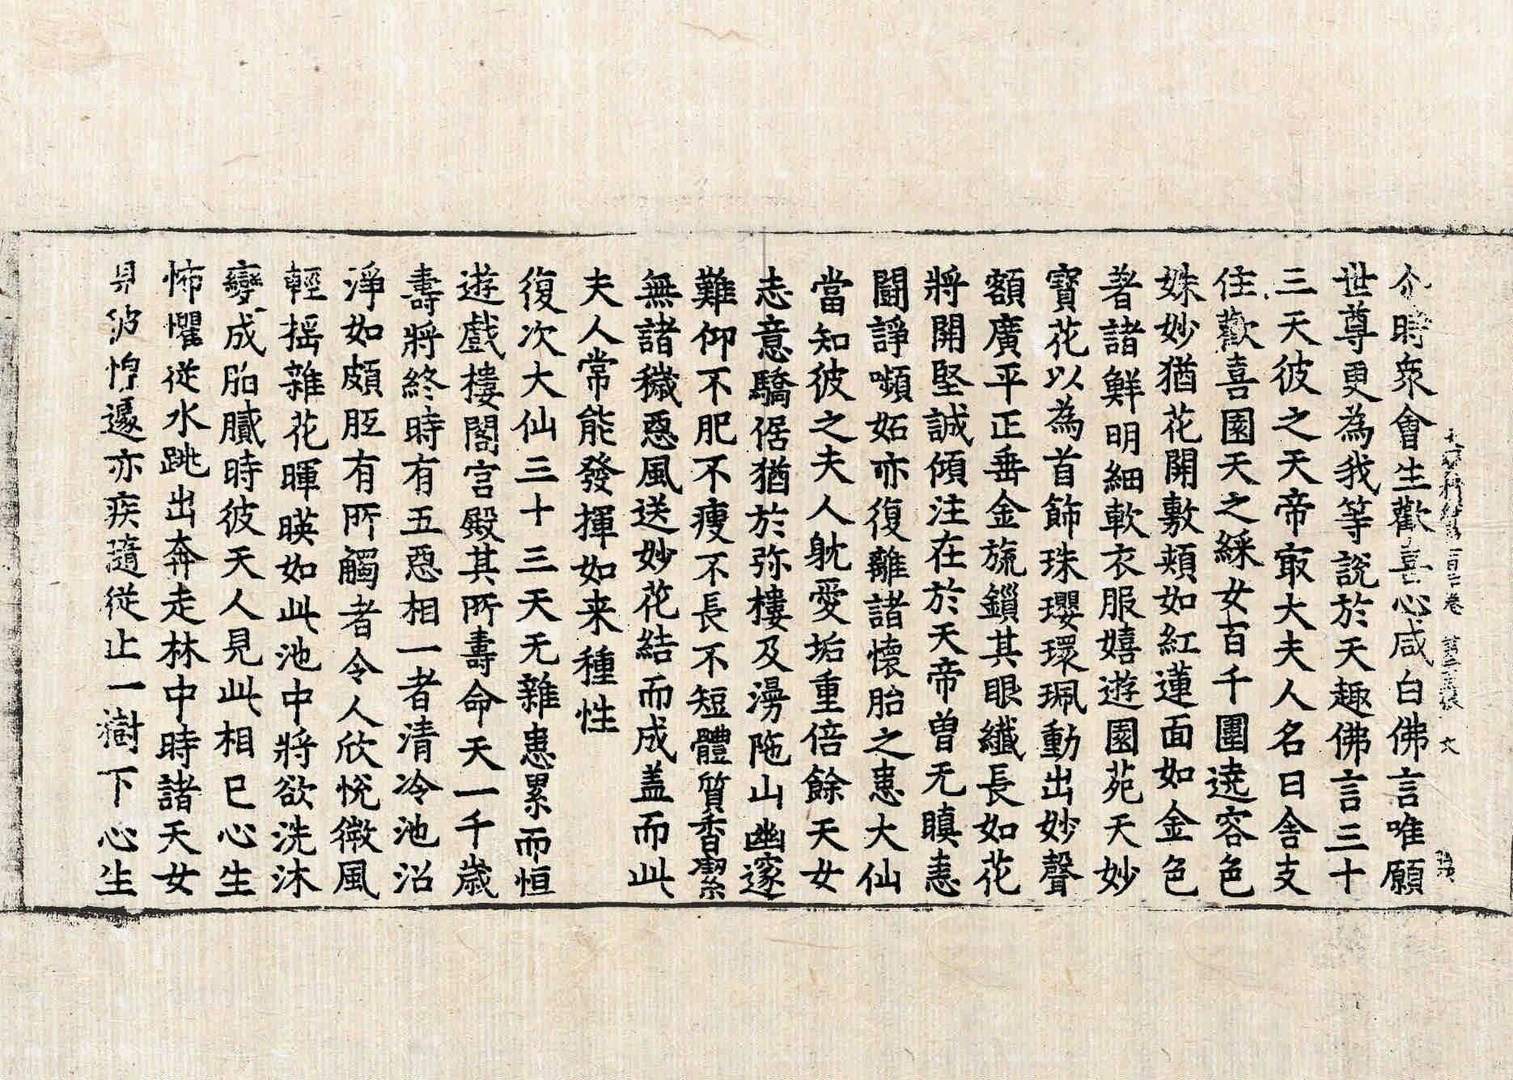 尒時衆會生歡喜心咸白佛言唯願
世尊更為我等說於天趣佛言三十
三天彼之天帝㝡大夫人名曰舍支
住歡喜園天之綵女百千圍遶容色
姝妙猶花開敷頰如紅蓮面如金色
著諸鮮明細軟衣服嬉遊園苑天妙
寶花以為首飾珠瓔環珮動出妙聲
額廣平正垂金旒鏁其眼纖長如花
將開堅誠傾注在於天帝曾无瞋恚
鬪諍嚬妬亦復離諸懷胎之患大仙
當知彼之夫人躭愛垢重倍餘天女
志意驕倨猶於弥樓及湯陁山幽邃
難仰不肥不瘦不長不短體質香潔
無諸穢惡風送妙花結而成盖而此
夫人常能發揮如来種性
復次大仙三十三天无雜患累而恒
遊戲樓閣宮殿其所壽命天一千歲
壽將終時有五惡相一者清冷池沼
淨如頗胝有所觸者令人欣悅微風
輕揺雜花暉暎如此池中將欲洗沐
變成脂膩時彼天人見此相已心生
怖懼從水跳出奔走林中時諸天女
見彼惶遽亦疾隨從止一樹下心生